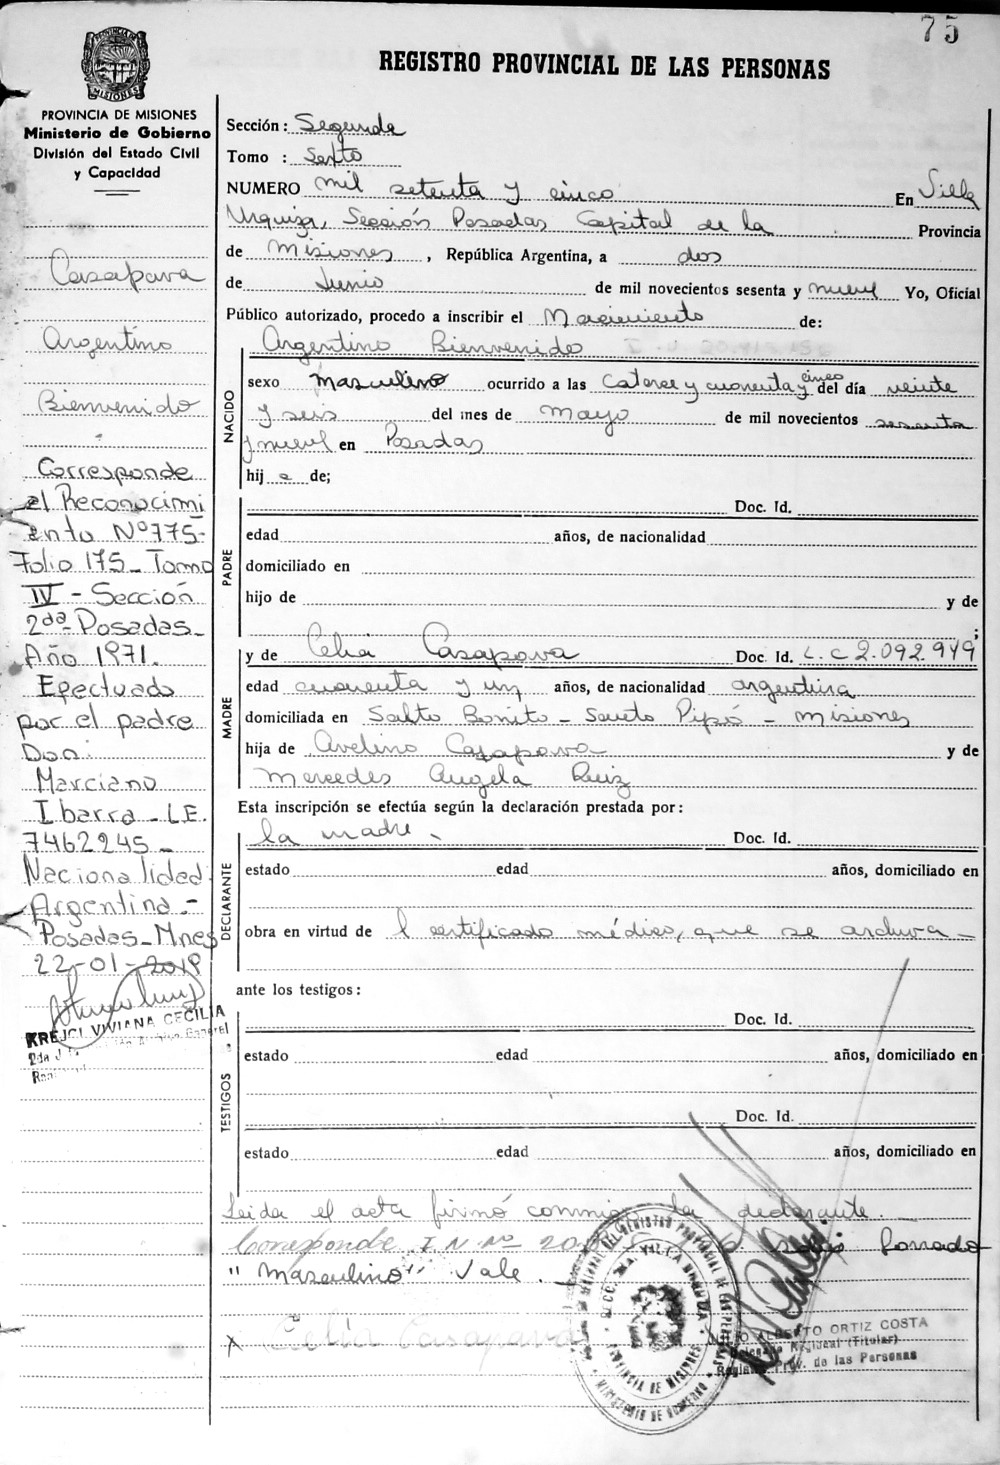 75
REGISTRO PROVINCIAL DE LAS PERSONAS
PROVINCIA DE MISIONES
Ministerio de Gobierno
División del Estado Civil
y Capacidad
Casapava
Argentino
Bienvenido
Corresponde
el Reconocimi
ento Nº 775-
Folio 175- Tomo
IV - Sección
2da- Posadas-
Año 1971.
Efectuado
por el padre
Don:
Marciano
Ibarra - L.E.
7462245 -
Nacionalidad
Argentina.-
Posadas-Mnes
22-01-2018
KREJCI VIVIANA CECILIA
Sección: Segunda
Tomo : Sexto
NUMERO mil setenta y cinco En Villa
Urquiza, Sección Posadas Capital de la Provincia
de Misiones, República Argentina, a dos
de Junio de mil novecientos sesenta y nueve Yo, Oficial
Público autorizado, procedo a inscribir el Nacimiento de:
NACIDO
Argentino Bienvenido
sexo masculino ocurrido a las catorce y cuarenta y cinco del día veinte
y seis del mes de mayo de mil novecientos sesenta
y nueve en Posadas
hij o de;
PADRE
Doc. Id.
edad años, de nacionalidad
domiciliado en
hijo de y de
;
MADRE
y de Celia Casapava Doc. Id. L.C 2.092.949
edad cuarenta y un años, de nacionalidad argentina
domiciliada en Salto Bonito - Santo Pipó - Misiones
hija de Avelino Casapava y de
Mercedes Angela Ruiz
Esta inscripción se efectúa según la declaración prestada por:
DECLARANTE
la madre - Doc. Id.
estado edad años, domiciliado en
obra en virtud de l certificado médico, que se archiva -
ante los testigos:
TESTIGOS
Doc. Id.
estado edad años, domiciliado en
Doc. Id.
estado edad años, domiciliado en
Leida el acta firmó conmigo la declarante.
Corresponde I.N. Nº Raspado
"Masculino" Vale.
x Celia Casapava
ALBERTO ORTIZ COSTA
Delegado Regional (Titular)
Registro Prov. de las Personas
PROVINCIA DE MISIONES
MINISTERIO DE GOBIERNO